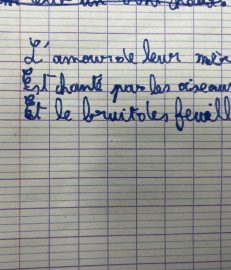 L'amour de leur mèr
Est chanté par les oiseau
Et le bruit des feuill